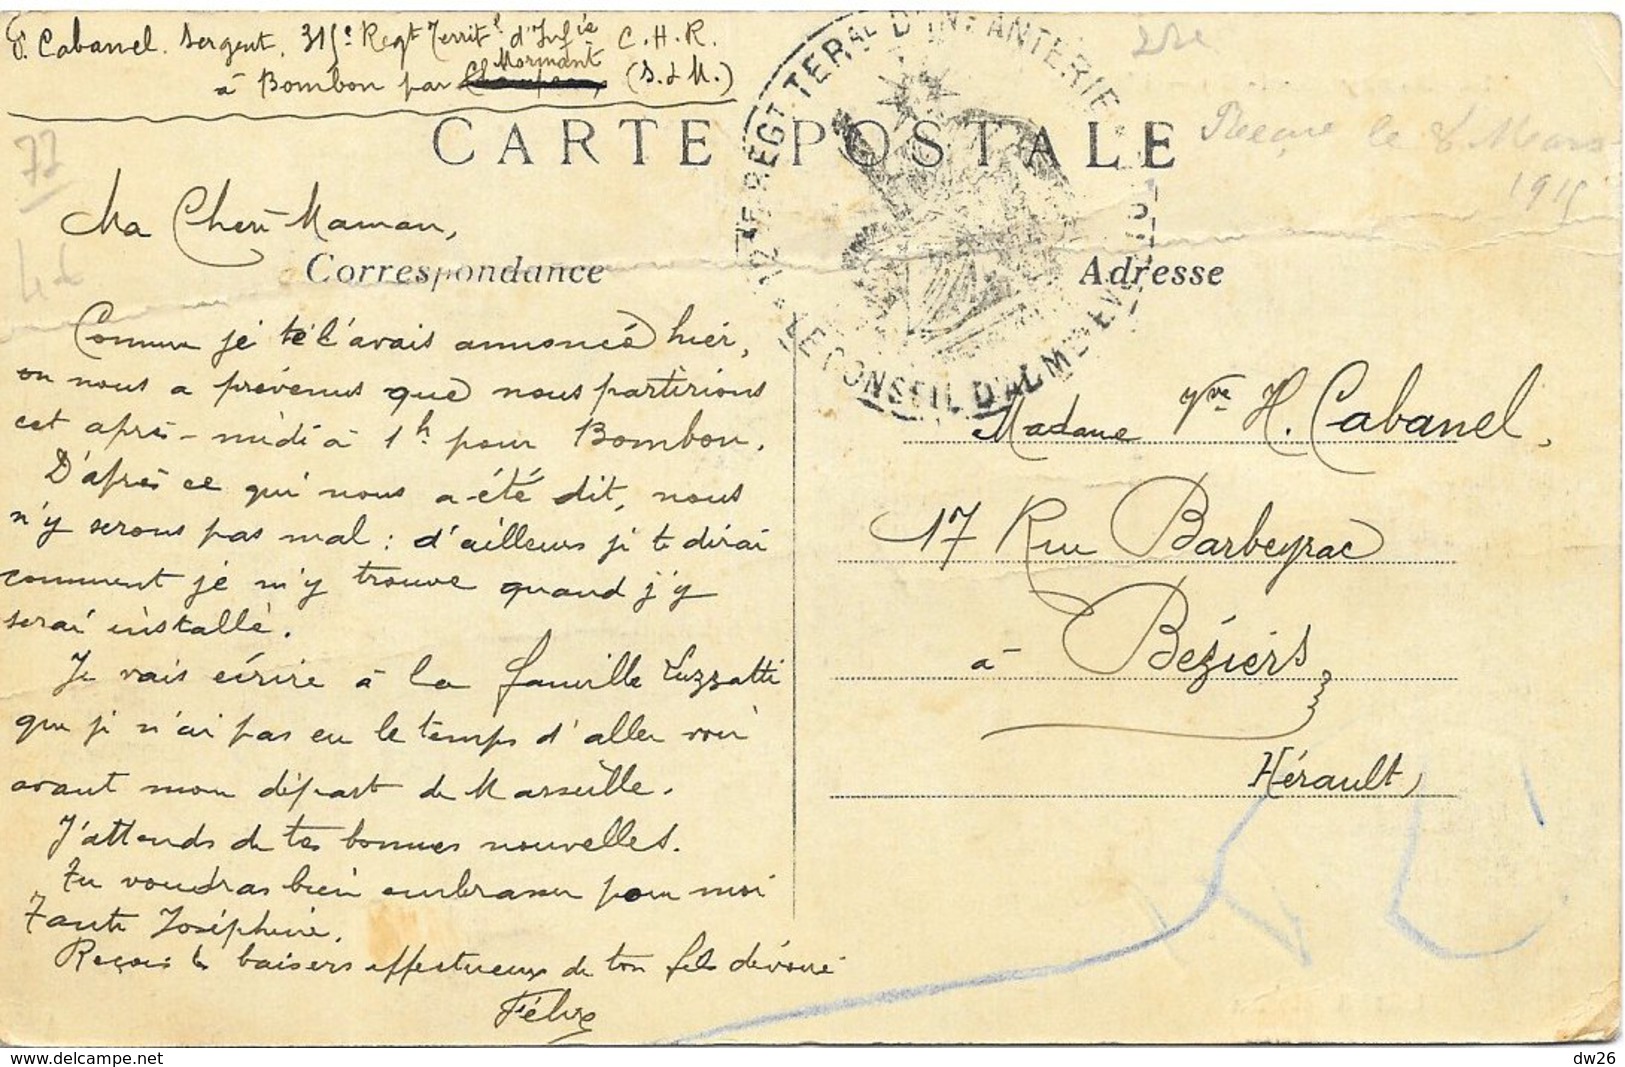 F. Cabanel. Sergent. 315e Regt Territl d'Infie C.H.R.
à Bombon par Mormant (S. & M.)
CARTE POSTALE
12EME REGT TERAL D'INFANTERIE
LE CONSEIL D'ADM
Reçue le 8 Mars
1915
77
Ma Chère Maman,
Correspondance
Adresse
Comme je te l'avais annoncé hier,
on nous a prévenus que nous partirions
cet après-midi à 1h pour Bombon.
D'après ce qui nous a été dit, nous
n'y serons pas mal : d'ailleurs je te dirai
comment je m'y trouve quand j'y
serai installé.
Je vais écrire à la famille Luzzatti
que je n'ai pas eu le temps d'aller voir
avant mon départ de Marseille.
J'attends de tes bonnes nouvelles.
Tu voudras bien embrasser pour moi
Tante Joséphine.
Reçois les baisers affectueux de ton fils dévoué
Félix
Madame Vve H. Cabanel,
17 Rue Barbeyrac
à Béziers
Hérault,
dw26